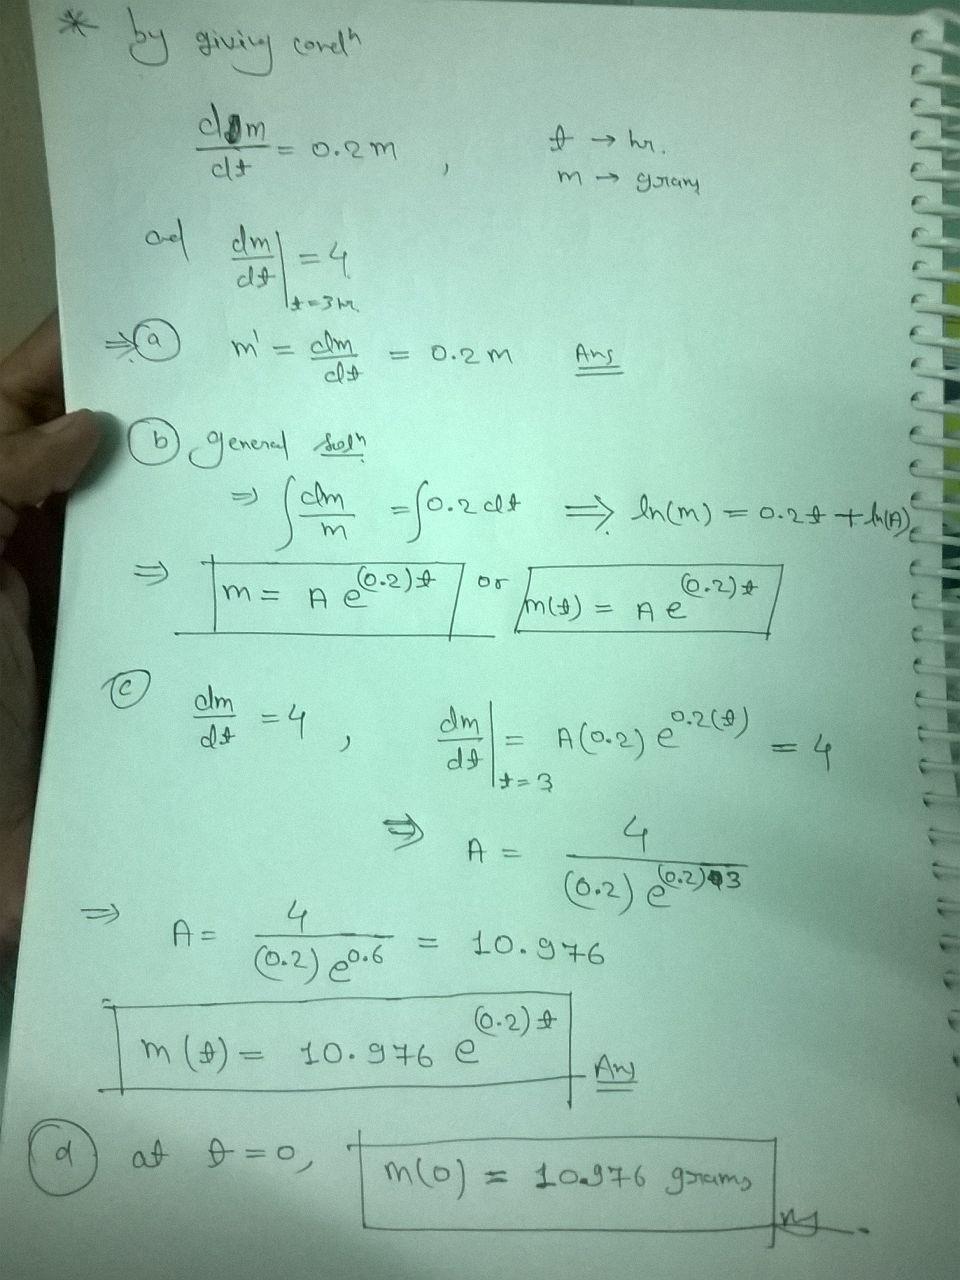 * by giving condn
dm/dt = 0.2m , t → hr.
m → gram
and dm/dt|t=3hr. = 4
⇒ (a) m' = dm/dt = 0.2m Ans
(b) general soln
⇒ ∫ dm/m = ∫0.2dt ⇒ ln(m) = 0.2t + ln(A)
⇒ m = A e^(0.2)t or m(t) = A e^(0.2)t
(c) dm/dt = 4 , dm/dt|t=3 = A(0.2) e^0.2(t) = 4
⇒ A = 4/((0.2) e^(0.2)3)
⇒ A = 4/((0.2) e^0.6) = 10.976
m(t) = 10.976 e^(0.2)t Ans
(d) at t=0, m(0) = 10.976 grams